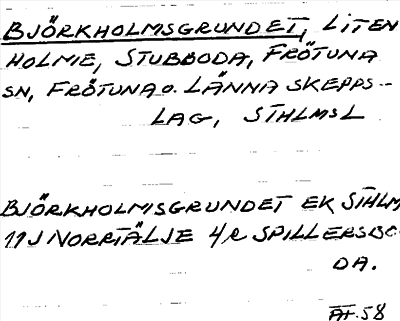 BJÖRKHOLMSGRUNDET, LITEN
HOLME, STUBBODA, FRÖTUNA
SN, FRÖTUNA O. LÄNNA SKEPPS-
LAG, STHLMS L
BJÖRKHOLMSGRUNDET EK STHLM
11J NORRTÄLJE 4/R SPILLERSBO-
DA.
AF.58